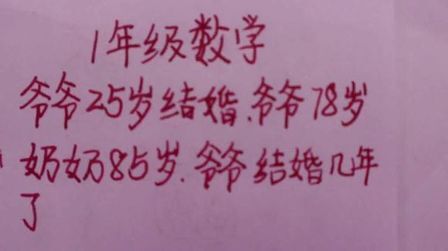 1年级数学
爷爷25岁结婚.爷爷78岁
奶奶85岁.爷爷结婚几年
了